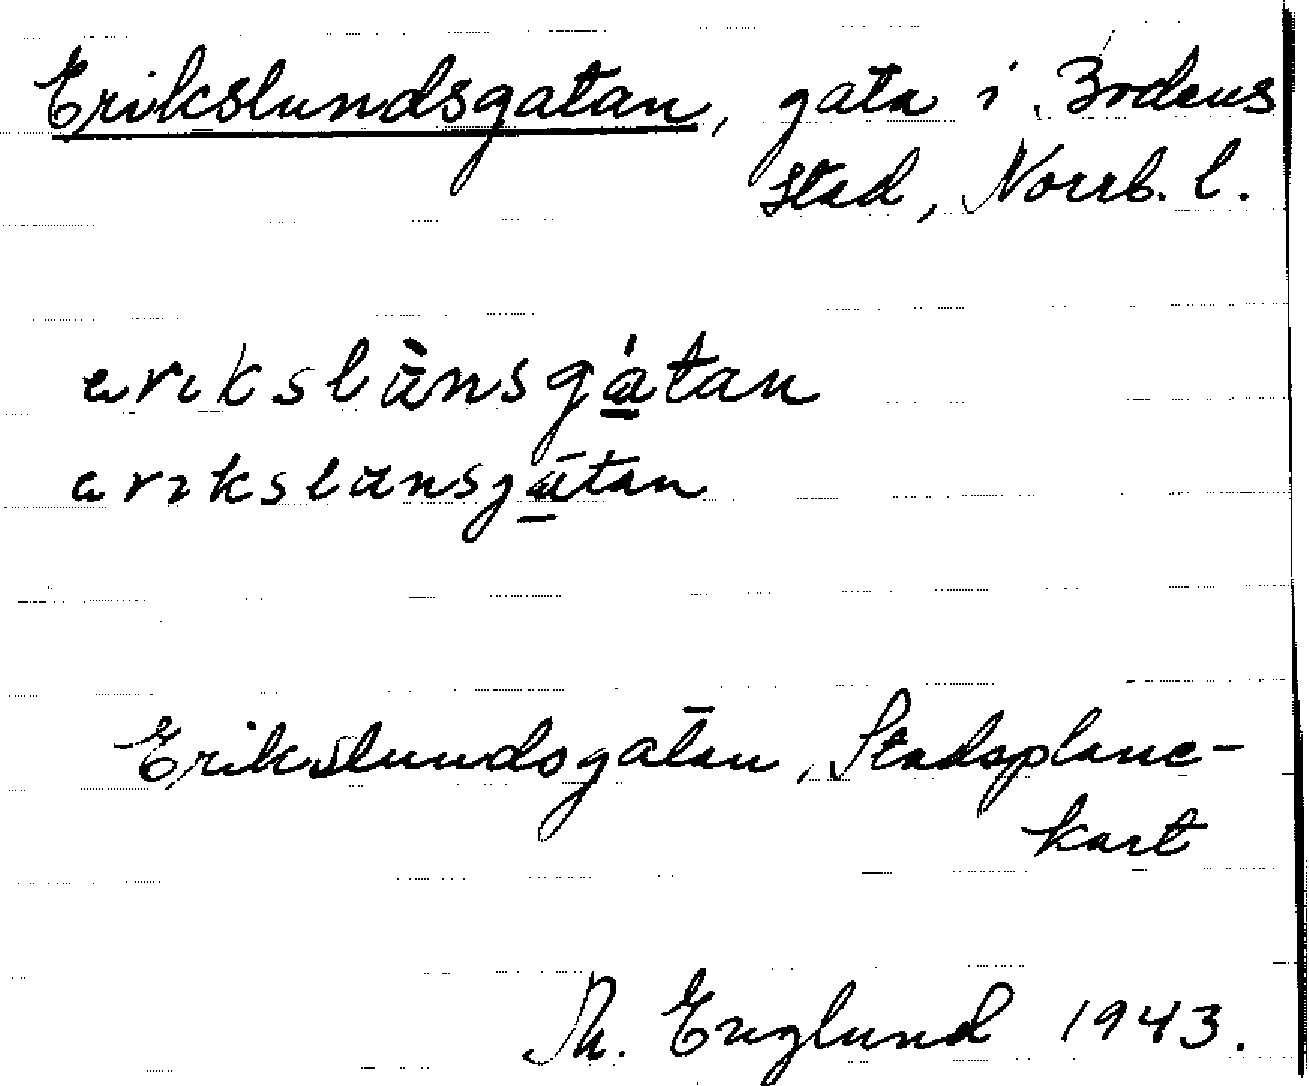 Erikslundsgatan, gata i Bodens
stad, Norrb. l.
erikslùnsgátan
arikslunsgātan
Erikslundsgatan, Stadsplane-
kart
Th. Englund 1943.